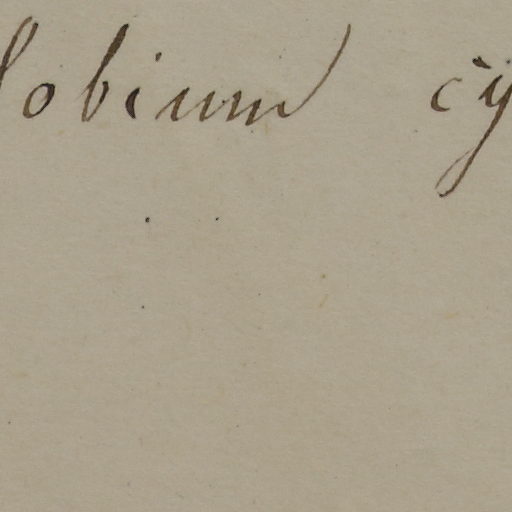 lobium cy